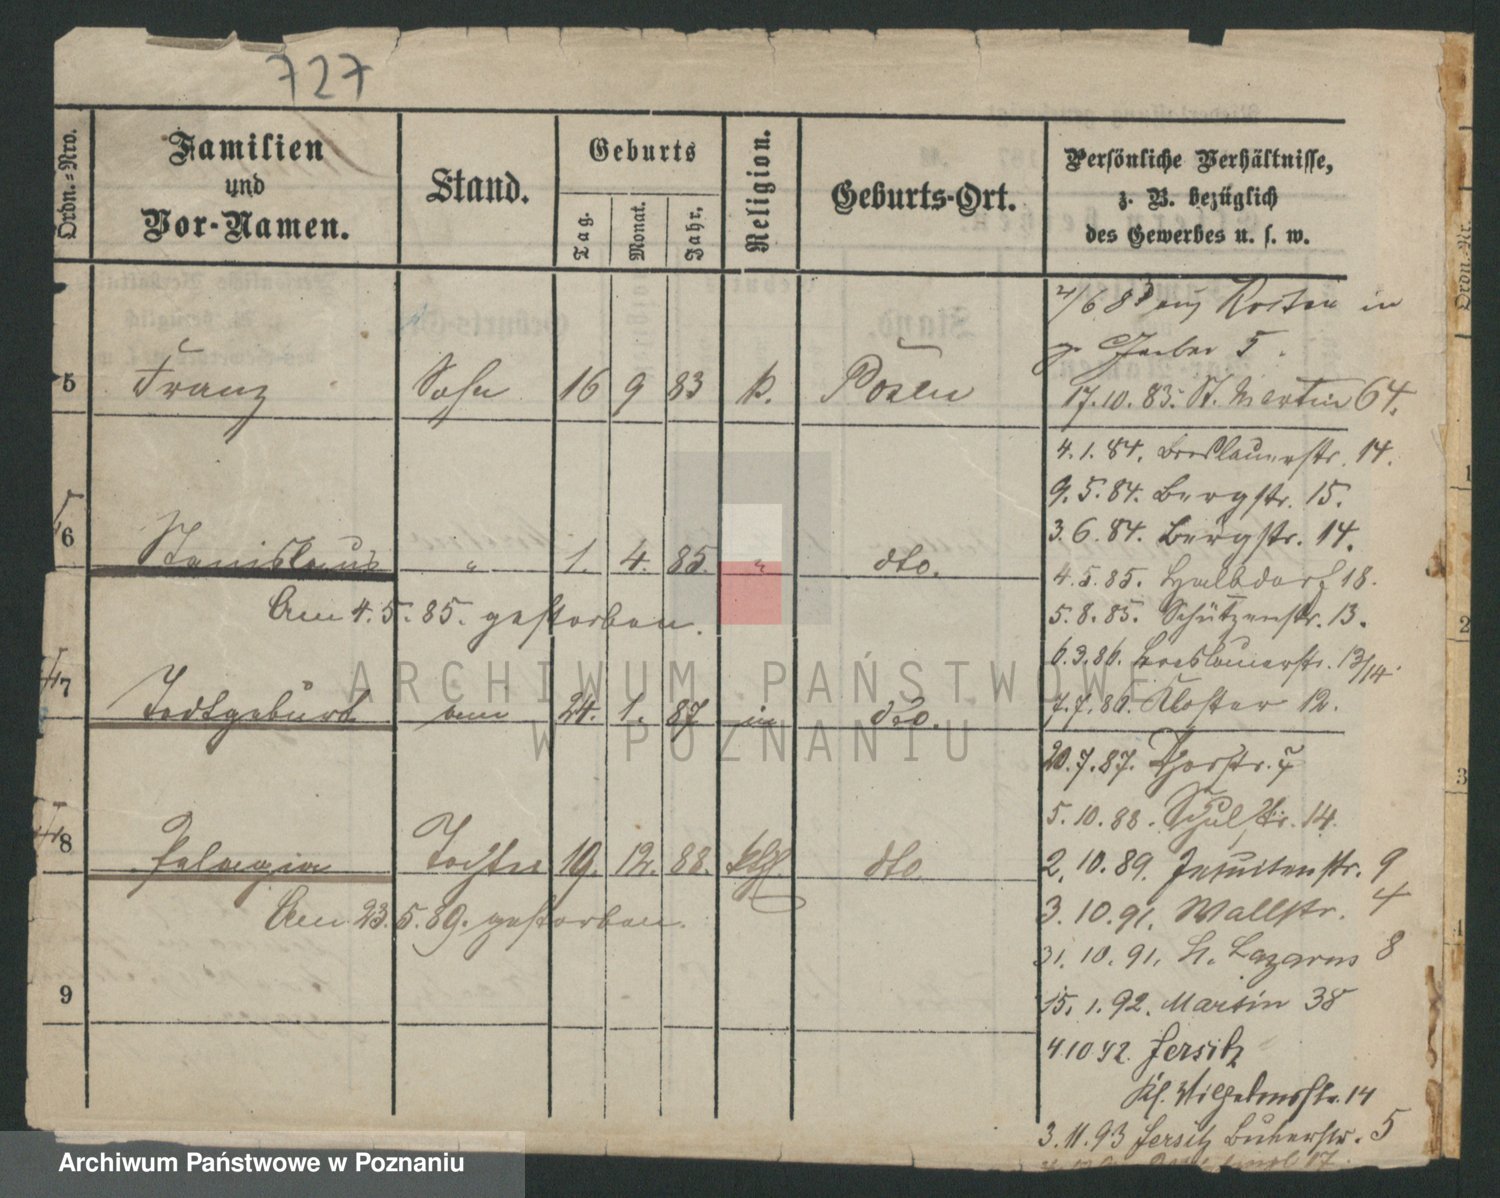 727
Ordn.=Nro.
Familien
und
Vor-Namen.
Stand.
Geburts
Tag.
Monat.
Jahr.
Religion.
Geburts-Ort.
Persönliche Verhältnisse,
z. B. bezüglich
des Gewerbes u. s. w.
5 Franz Sohn 16 9 83 k. Posen
in
5
17.10.83. St. Martin 64.
4.1.84. Breslauerstr. 14.
9.5.84. Bergstr. 15.
3.6.84. Bergstr. 14.
6 Stanislaus " 1. 4. 85. " dto.
4.5.85. Halbdorf 18.
Am 4.5.85. gestorben.
5.8.85. Schützenstr. 13.
6.3.86. Breslauerstr. 13/14.
7 Todtgeburt am 24. 1. 87 in dto.
7.7.86. Kloster 12.
20.7.87. Thorstr.
5.10.88. Schulstr. 14.
8 Pelagia Tochter 19. 12. 88. kth. dto
2.10.89. Jesuitenstr. 9
Am 23.5.89. gestorben.
3.10.91. Wallstr. 4
31.10.91. St. Lazarus 8
9
15.1.92. Martin 38
4.10.92. Jersitz
Kl. Wilhelmstr. 14
3.11.93 Jersitz Bukerstr. 5
17.
Ordn.-Nr.
1
2
3
4
ARCHIWUM PAŃSTWOWE
W POZNANIU
Archiwum Państwowe w Poznaniu